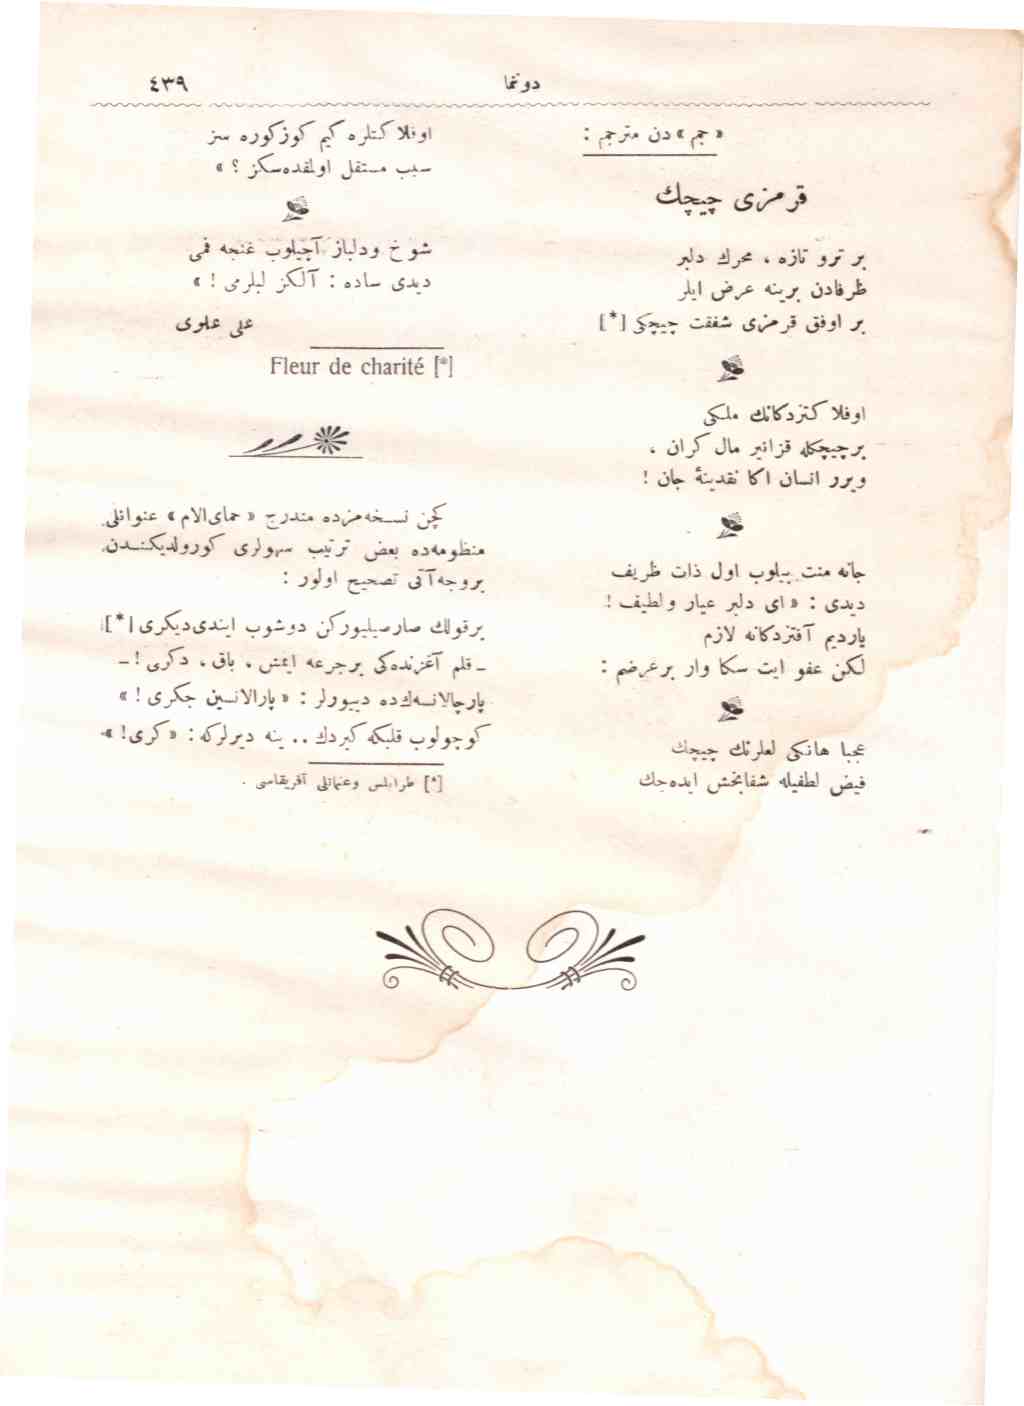 ٤٣٩
دوننما
«جم» دن مترجم :
قرمزی چیچك
بر ترو تازه ، محرك دلبر
ظرفادن برینه عرض ایلر
بر اوفق قرمزی شفقت چیچكی [*]
اوفلا كتزدكانك ملكی
برچیچكله قزانیر مال كران ،
ویرر انسان اكا نقدینهٔ جان !
جانه منت بیلوب اول ذات ظریف
دیدی : « ای دلبر عیار ولطیف !
یاردیم آفتزدكانه لازم
لكن عفو ایت سكا وار برعرضم :
عجبا هانكی لعلرنك چیچك
فیض لطفیله شفابخش ایده جك
اوفلا كتلره كیم كوزكوره سز
سبب مستقل اولمقده سكز ؟ »
شوخ ودلباز آچیلوب غنجه فمی
دیدی ساده : آلكز لبلرمی ! »
علی علوی
Fleur de charité [*]
كچن نسخه مزده مندرج « حمای الام » عنوانلی
منظومه ده بعض ترتیب سهولری كورولدیكندن
بروجه آتی تصحیح اولور :
برقولك صارصیلیوركن دوشوب ایندی دیكری [*]
ـ قلم آغزنده كی برجرعه ایمش ، باق ، دكری ! ـ
پارچالانسه ك ده دییورلر : « پارالانسین جكری ! »
كوچولوب قلبكه كیردك .. ینه دیرلركه : « كری ! »
[*] طرابلس وعثمانلی آفریقاسی .